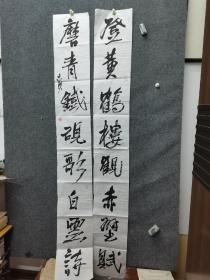 登黄鶴樓觀赤壁賦
磨青鐵硯歌白雲詩